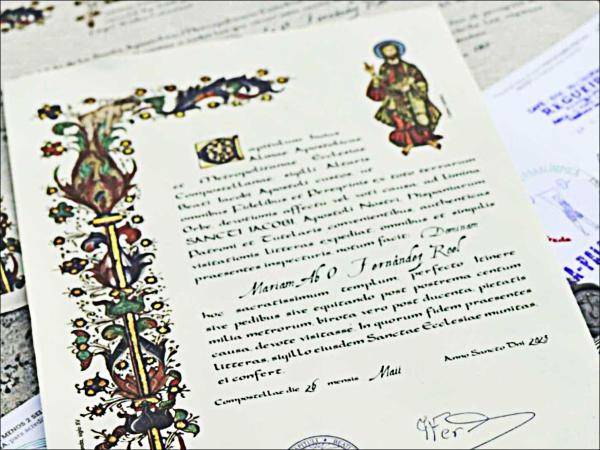 Capitulum huius
Almae Apostolicae
et Metropolitanae Ecclesiae
Compostellanae sigilli Altaris
Beati Iacobi Apostoli custos ut
omnibus Fidelibus et Peregrinis ex toto terrarum
Orbe, devotionis affectu vel voti causa, ad limina
SANCTI IACOBI, Apostoli Nostri, Hispaniarum
Patroni et Tutelaris convenientibus, authenticas
visitationis litteras expediat, omnibus et singulis
praesentes inspecturis, notum facit: Dominam
Mariam Ab O Fernández Reel
hoc sacratissimum templum, perfecto Itinere
sive pedibus sive equitando post postrema centum
milia metrorum, birota vero post ducenta, pietatis
causa, devote visitasse. In quorum fidem praesentes
litteras, sigillo eiusdem Sanctae Ecclesiae munitas,
ei confert.
Compostellae die 26 mensis Maii Anno Sancto Dni 2023
REGUEI
MENOS 2 SE